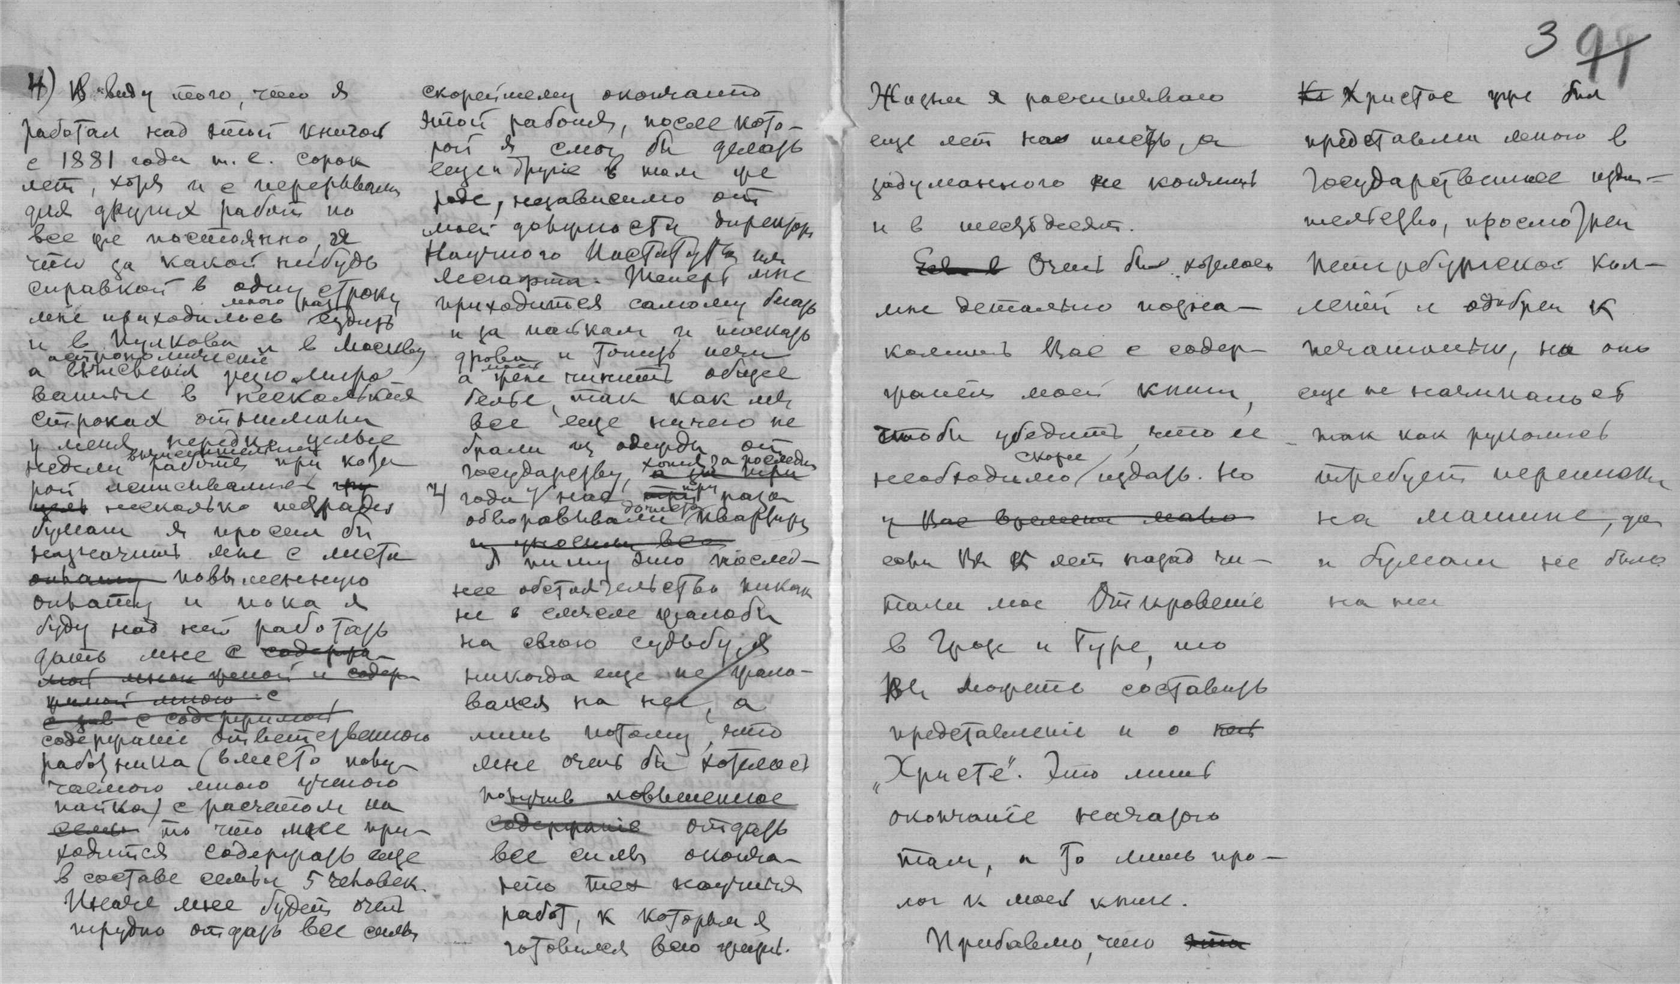 3 99
4) В виду того, что я
работал над этой книгой
с 1881 года т. е. сорок
лет, хотя и с перерывами
для других работ но
все же постоянно, и
что за какой нибудь
справкой в одну строку
мне приходилось много раз ездить
и в Пулково и в Москву
а астрономические вычисления резюмиро
ванные в нескольких
строках отнимали
у меня нередко целые
недели вычислительной работы при кото
рой исписывалась
несколько тетрадей
бумаги я просил бы
назначить мне с листа
повышенную
оплату и пока я
буду над ней работать
дать мне с содержа-
мой мною семьей и содер-
жимой мною с
с содержимой
содержание ответственного
работника (вместо полу-
чаемого мною ученого
пайка) с расчетом на
то что мне при-
ходится содержать еще
в составе семьи 5 человек.
Иначе мне будет очень
трудно отдать все силы
скорейшему окончанию
этой работы, после кото-
рой я смог бы делать
еще и другие в том же
роде, независимо от
моей должности директора
Научного Института им
Лесгафта. Теперь мне
приходится самому бегать
и за пайками и таскать
дрова и топить печи
а жене чинить общее
белье, так как мы
все еще ничего не
брали из одежды от
государства, хотя за последние а за три
4 года у нас три раза
обворовывали дочиста квартиру
и уносили все
Я пишу это послед-
нее обстоятельство никак
не в смысле жалобы
на свою судьбу, я
никогда еще не жало-
вался на нее, а
лишь потому, что
мне очень бы хотелось
получив повышенное
содержание отдать
все силы оконча-
нию тех научных
работ, к которым я
готовился всю жизнь.
Жизни я рассчитываю
еще лет на шесть, а
задуманного не кончишь
и в шестьдесят.
Очень бы хотелось
мне детально позна-
комить Вас с содер-
жанием моей книги,
чтобы убедить, что ее
необходимо скорее издать. Но
у Вас времени мало
если Вы 5 лет назад чи-
тали мое Откровение
в Грозе и Буре, то
Вы можете составить
представление и о
„Христе“. Это лишь
окончание начатого
там, а то лишь про-
лог к моей книге.
Прибавлю, что эта
Христос уже был
представлен мною в
Государственное изда-
тельство, просмотрен
Петербургской кол-
легией и одобрен к
печатанию, но оно
еще не начинается
так как рукопись
требует переписки
на машине, да
и бумаги не было
на нее